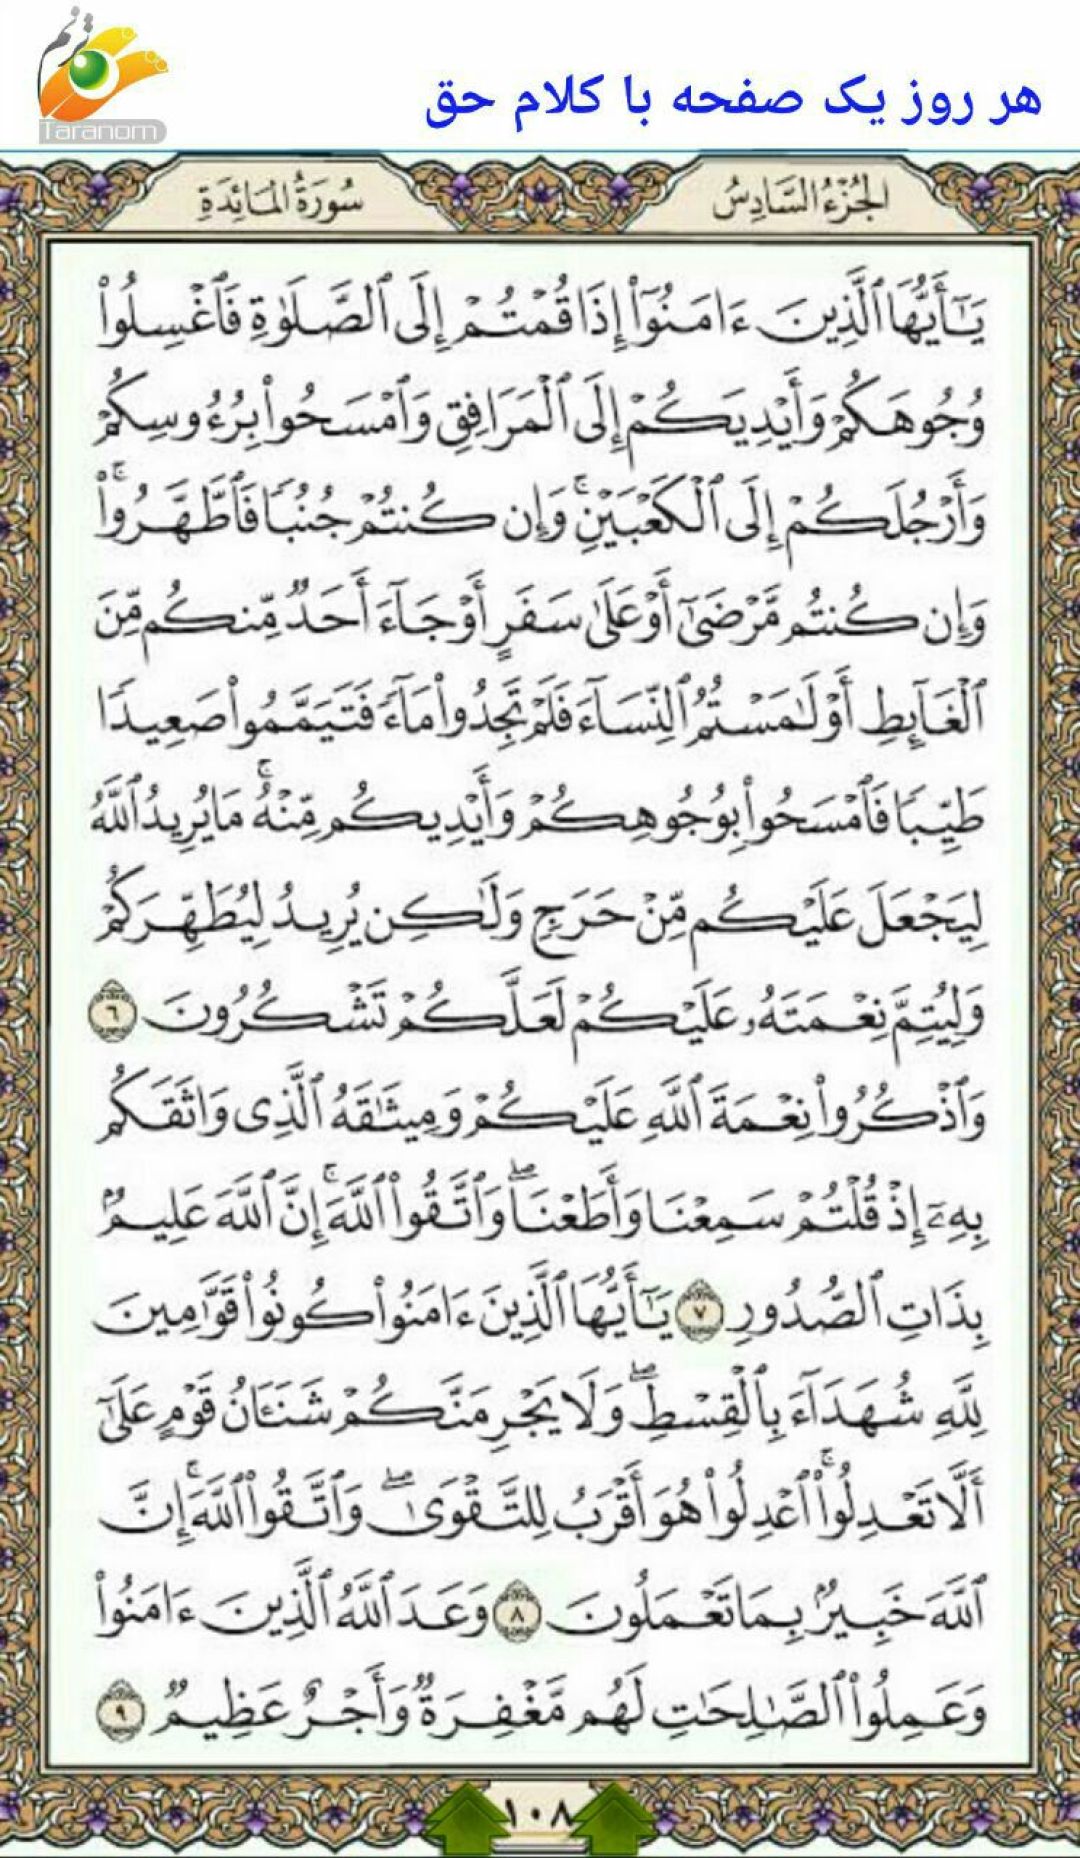 ترنم
Taranom
هر روز یک صفحه با کلام حق
الجُزْءُ السَّادِسُ
سُورَةُ المَائِدَةِ
يَـٰٓأَيُّهَا ٱلَّذِينَ ءَامَنُوٓا۟ إِذَا قُمْتُمْ إِلَى ٱلصَّلَوٰةِ فَٱغْسِلُوا۟
وُجُوهَكُمْ وَأَيْدِيَكُمْ إِلَى ٱلْمَرَافِقِ وَٱمْسَحُوا۟ بِرُءُوسِكُمْ
وَأَرْجُلَكُمْ إِلَى ٱلْكَعْبَيْنِ ۚ وَإِن كُنتُمْ جُنُبًا فَٱطَّهَّرُوا۟ ۚ
وَإِن كُنتُم مَّرْضَىٰٓ أَوْ عَلَىٰ سَفَرٍ أَوْ جَآءَ أَحَدٌ مِّنكُم مِّنَ
ٱلْغَآئِطِ أَوْ لَـٰمَسْتُمُ ٱلنِّسَآءَ فَلَمْ تَجِدُوا۟ مَآءً فَتَيَمَّمُوا۟ صَعِيدًا
طَيِّبًا فَٱمْسَحُوا۟ بِوُجُوهِكُمْ وَأَيْدِيكُم مِّنْهُ ۚ مَا يُرِيدُ ٱللَّهُ
لِيَجْعَلَ عَلَيْكُم مِّنْ حَرَجٍ وَلَـٰكِن يُرِيدُ لِيُطَهِّرَكُمْ
وَلِيُتِمَّ نِعْمَتَهُۥ عَلَيْكُمْ لَعَلَّكُمْ تَشْكُرُونَ ٦
وَٱذْكُرُوا۟ نِعْمَةَ ٱللَّهِ عَلَيْكُمْ وَمِيثَـٰقَهُ ٱلَّذِى وَاثَقَكُم
بِهِۦٓ إِذْ قُلْتُمْ سَمِعْنَا وَأَطَعْنَا ۖ وَٱتَّقُوا۟ ٱللَّهَ ۚ إِنَّ ٱللَّهَ عَلِيمٌۢ
بِذَاتِ ٱلصُّدُورِ ٧ يَـٰٓأَيُّهَا ٱلَّذِينَ ءَامَنُوا۟ كُونُوا۟ قَوَّٰمِينَ
لِلَّهِ شُهَدَآءَ بِٱلْقِسْطِ ۖ وَلَا يَجْرِمَنَّكُمْ شَنَـَٔانُ قَوْمٍ عَلَىٰٓ
أَلَّا تَعْدِلُوا۟ ۚ ٱعْدِلُوا۟ هُوَ أَقْرَبُ لِلتَّقْوَىٰ ۖ وَٱتَّقُوا۟ ٱللَّهَ ۚ إِنَّ
ٱللَّهَ خَبِيرٌۢ بِمَا تَعْمَلُونَ ٨ وَعَدَ ٱللَّهُ ٱلَّذِينَ ءَامَنُوا۟
وَعَمِلُوا۟ ٱلصَّـٰلِحَـٰتِ لَهُم مَّغْفِرَةٌ وَأَجْرٌ عَظِيمٌ ٩
١٠٨